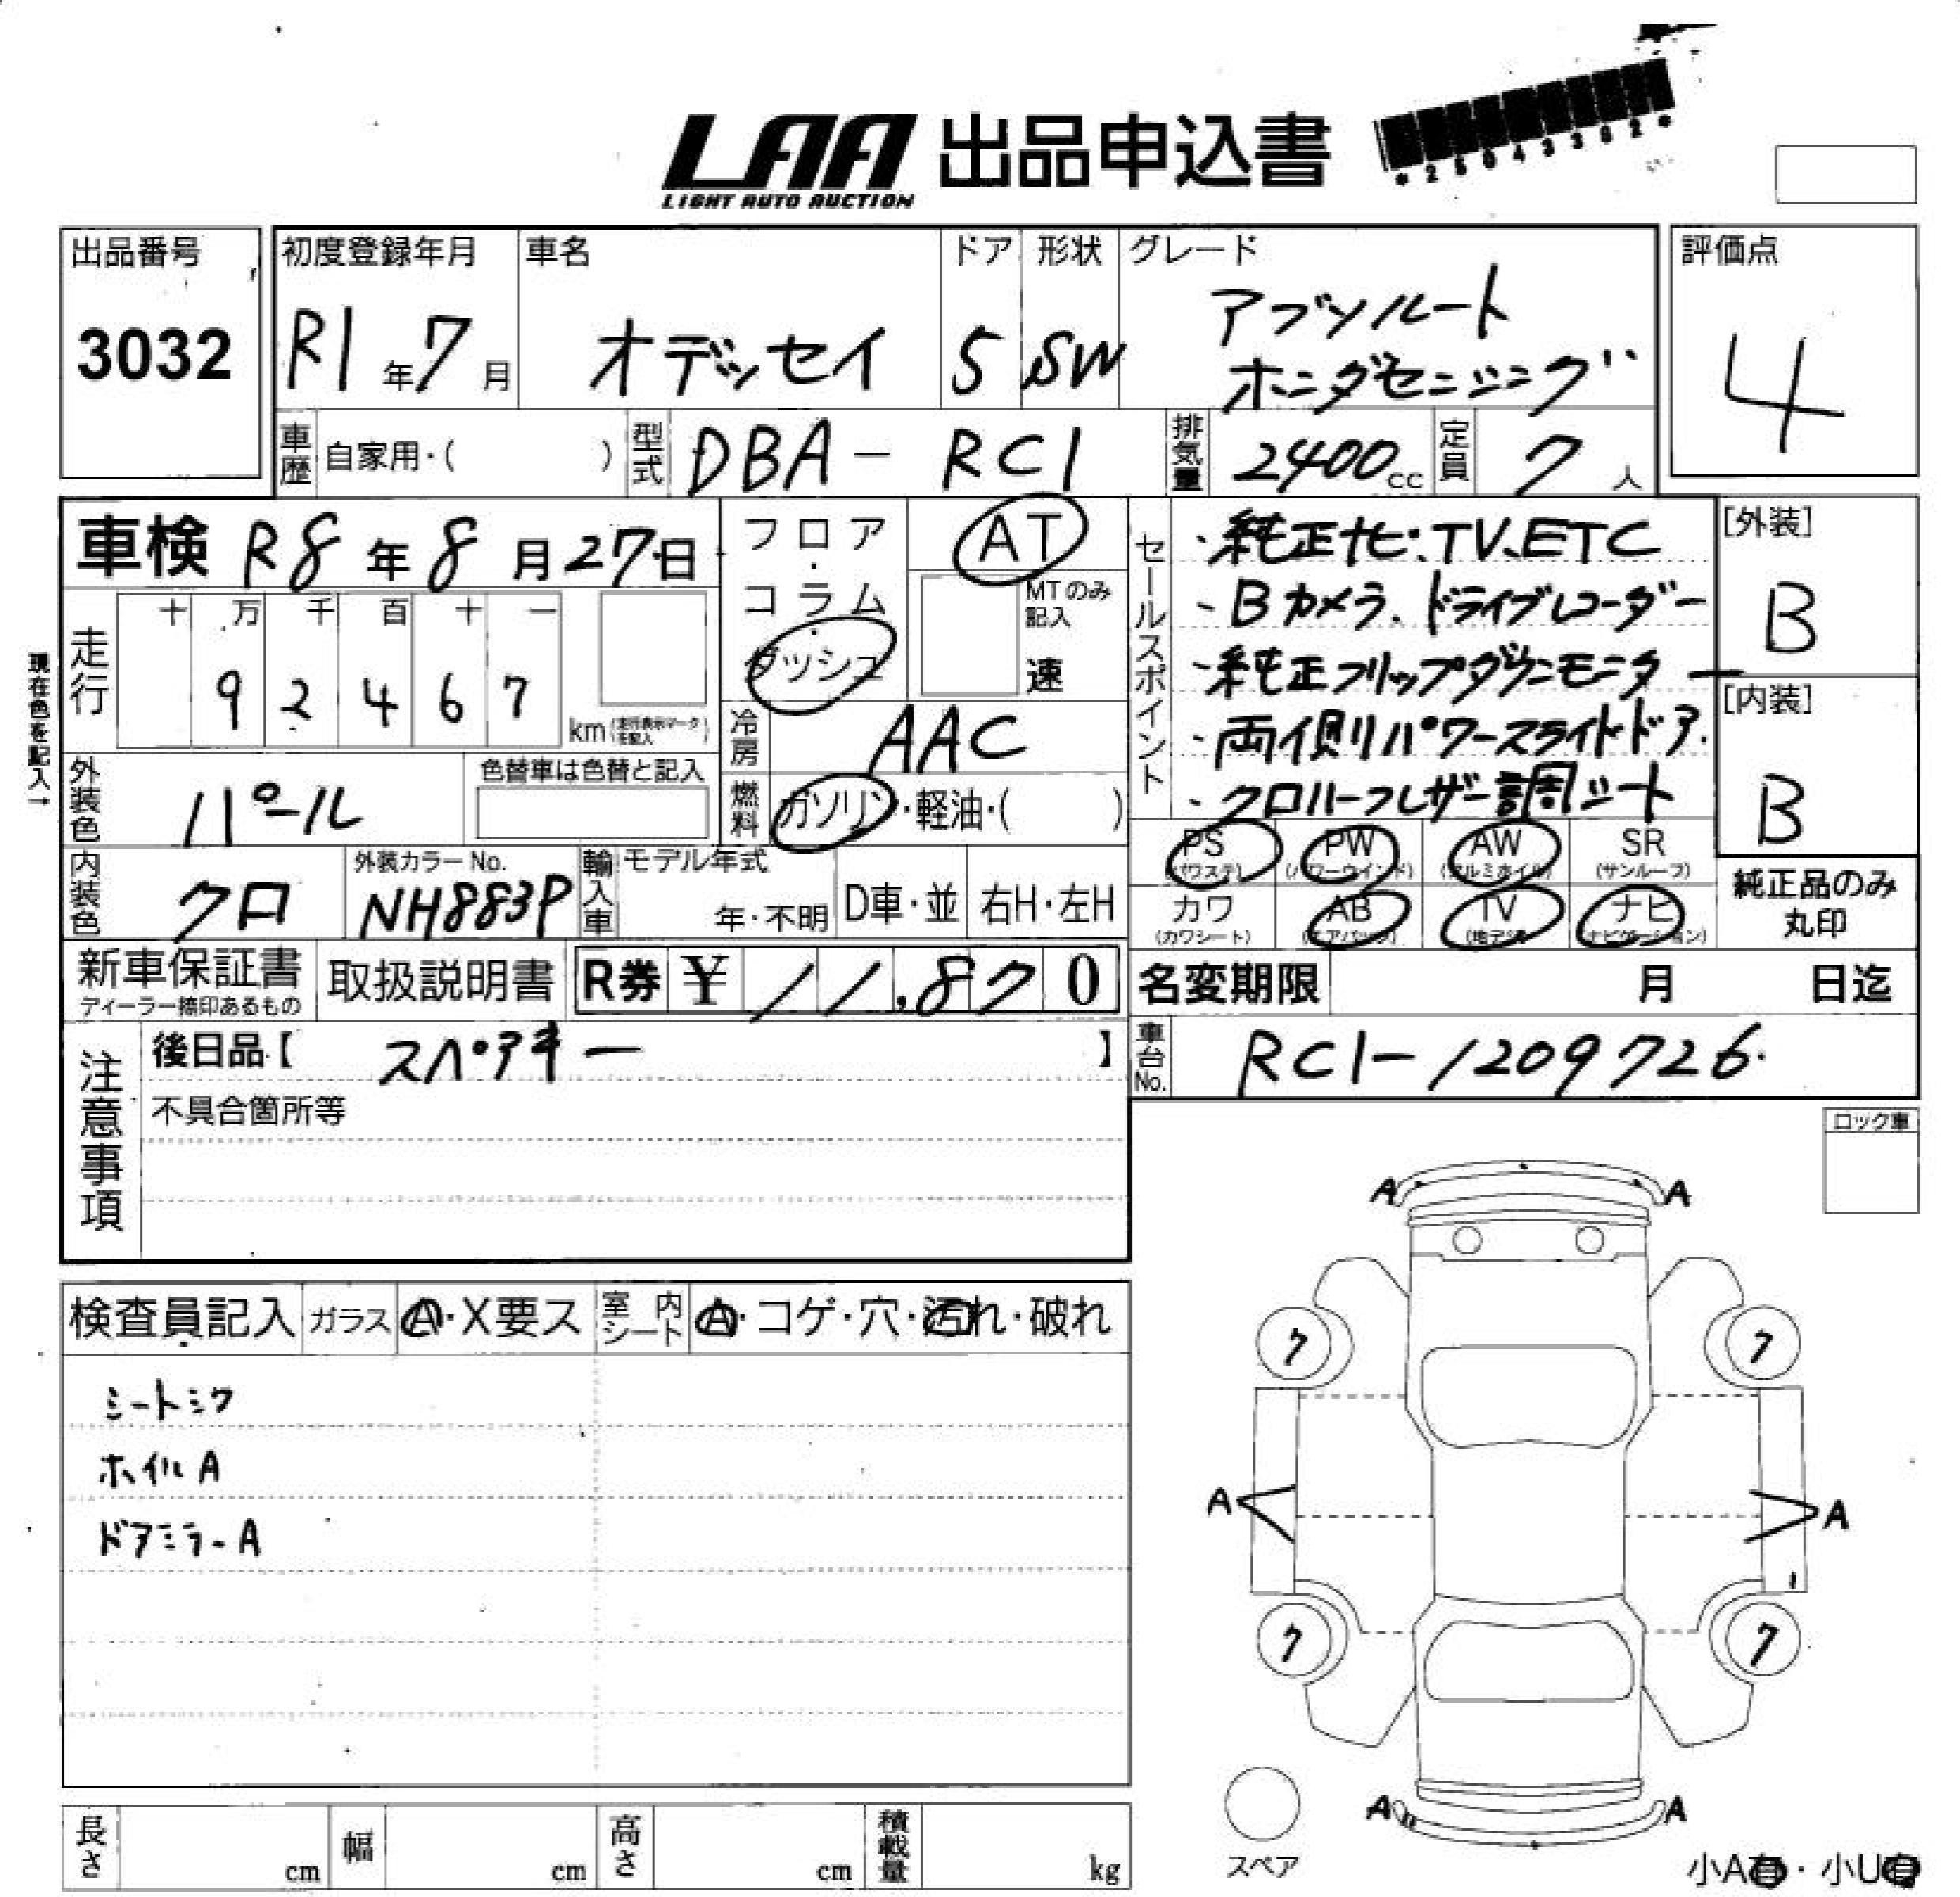 LAA 出品申込書
LIGHT AUTO AUCTION
出品番号
3032
初度登録年月
R1年7月
車名
オデッセイ
ドア
5
形状
SW
グレード
アブソルート
ホンダセンシング
評価点
4
車歴 自家用・( )
型式 DBA-RC1
排気量 2400cc
定員 7人
車検 R8年8月27日
走行 十 万 千 百 十 一
92467
km(走行表示マークを記入)
現在色を記入→
フロア・コラム・ダッシュ
AT
MTのみ記入
速
冷房 AAC
燃料 ガソリン・軽油・( )
外装色 パール
色替車は色替と記入
内装色 クロ
外装カラーNo.
NH883P
輸入車 モデル年式
年・不明 D車・並 右H・左H
セールスポイント
・純正ナビ.TV.ETC
・Bカメラ.ドライブレコーダー
・純正フリップダウンモニター
・両側パワースライドドア.
・クロハーフレザー調シート
[外装]
B
[内装]
B
PS PW AW SR
(パワステ) (パワーウインド) (アルミホイル) (サンルーフ)
カワ AB TV ナビ
(カワシート) (エアバック) (地デジ) (ナビゲーション)
純正品のみ
丸印
新車保証書
ディーラー捺印あるもの
取扱説明書
R券 ¥11,870
名変期限 月 日迄
車台No. RC1-1209726
注意事項
後日品【 スペアキー 】
不具合箇所等
ロック車
検査員記入 ガラス A・X要ス 室内シート A・コゲ・穴・汚れ・破れ
シートシワ
ホイルA
ドアミラーA
A A
ク ク
A A
ク ク
A A
スペア
小A有・小U有
長さ cm 幅 cm 高さ cm 積載量 kg